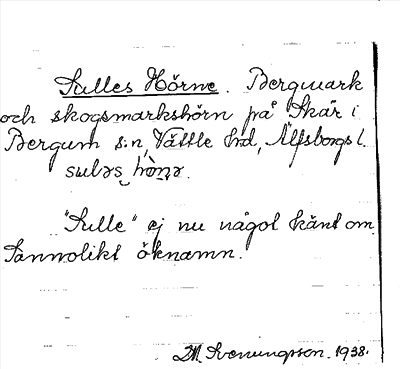 Sulles Hörne. Bergmark
och skogsmarkshörn på Skår i
Bergum s:n, Vättle hd, Älfsborgs l.
suləs hö̀ṇə.
"Sulle" ej nu något känt om.
Sannolikt öknamn.
Svenungsson. 1938.